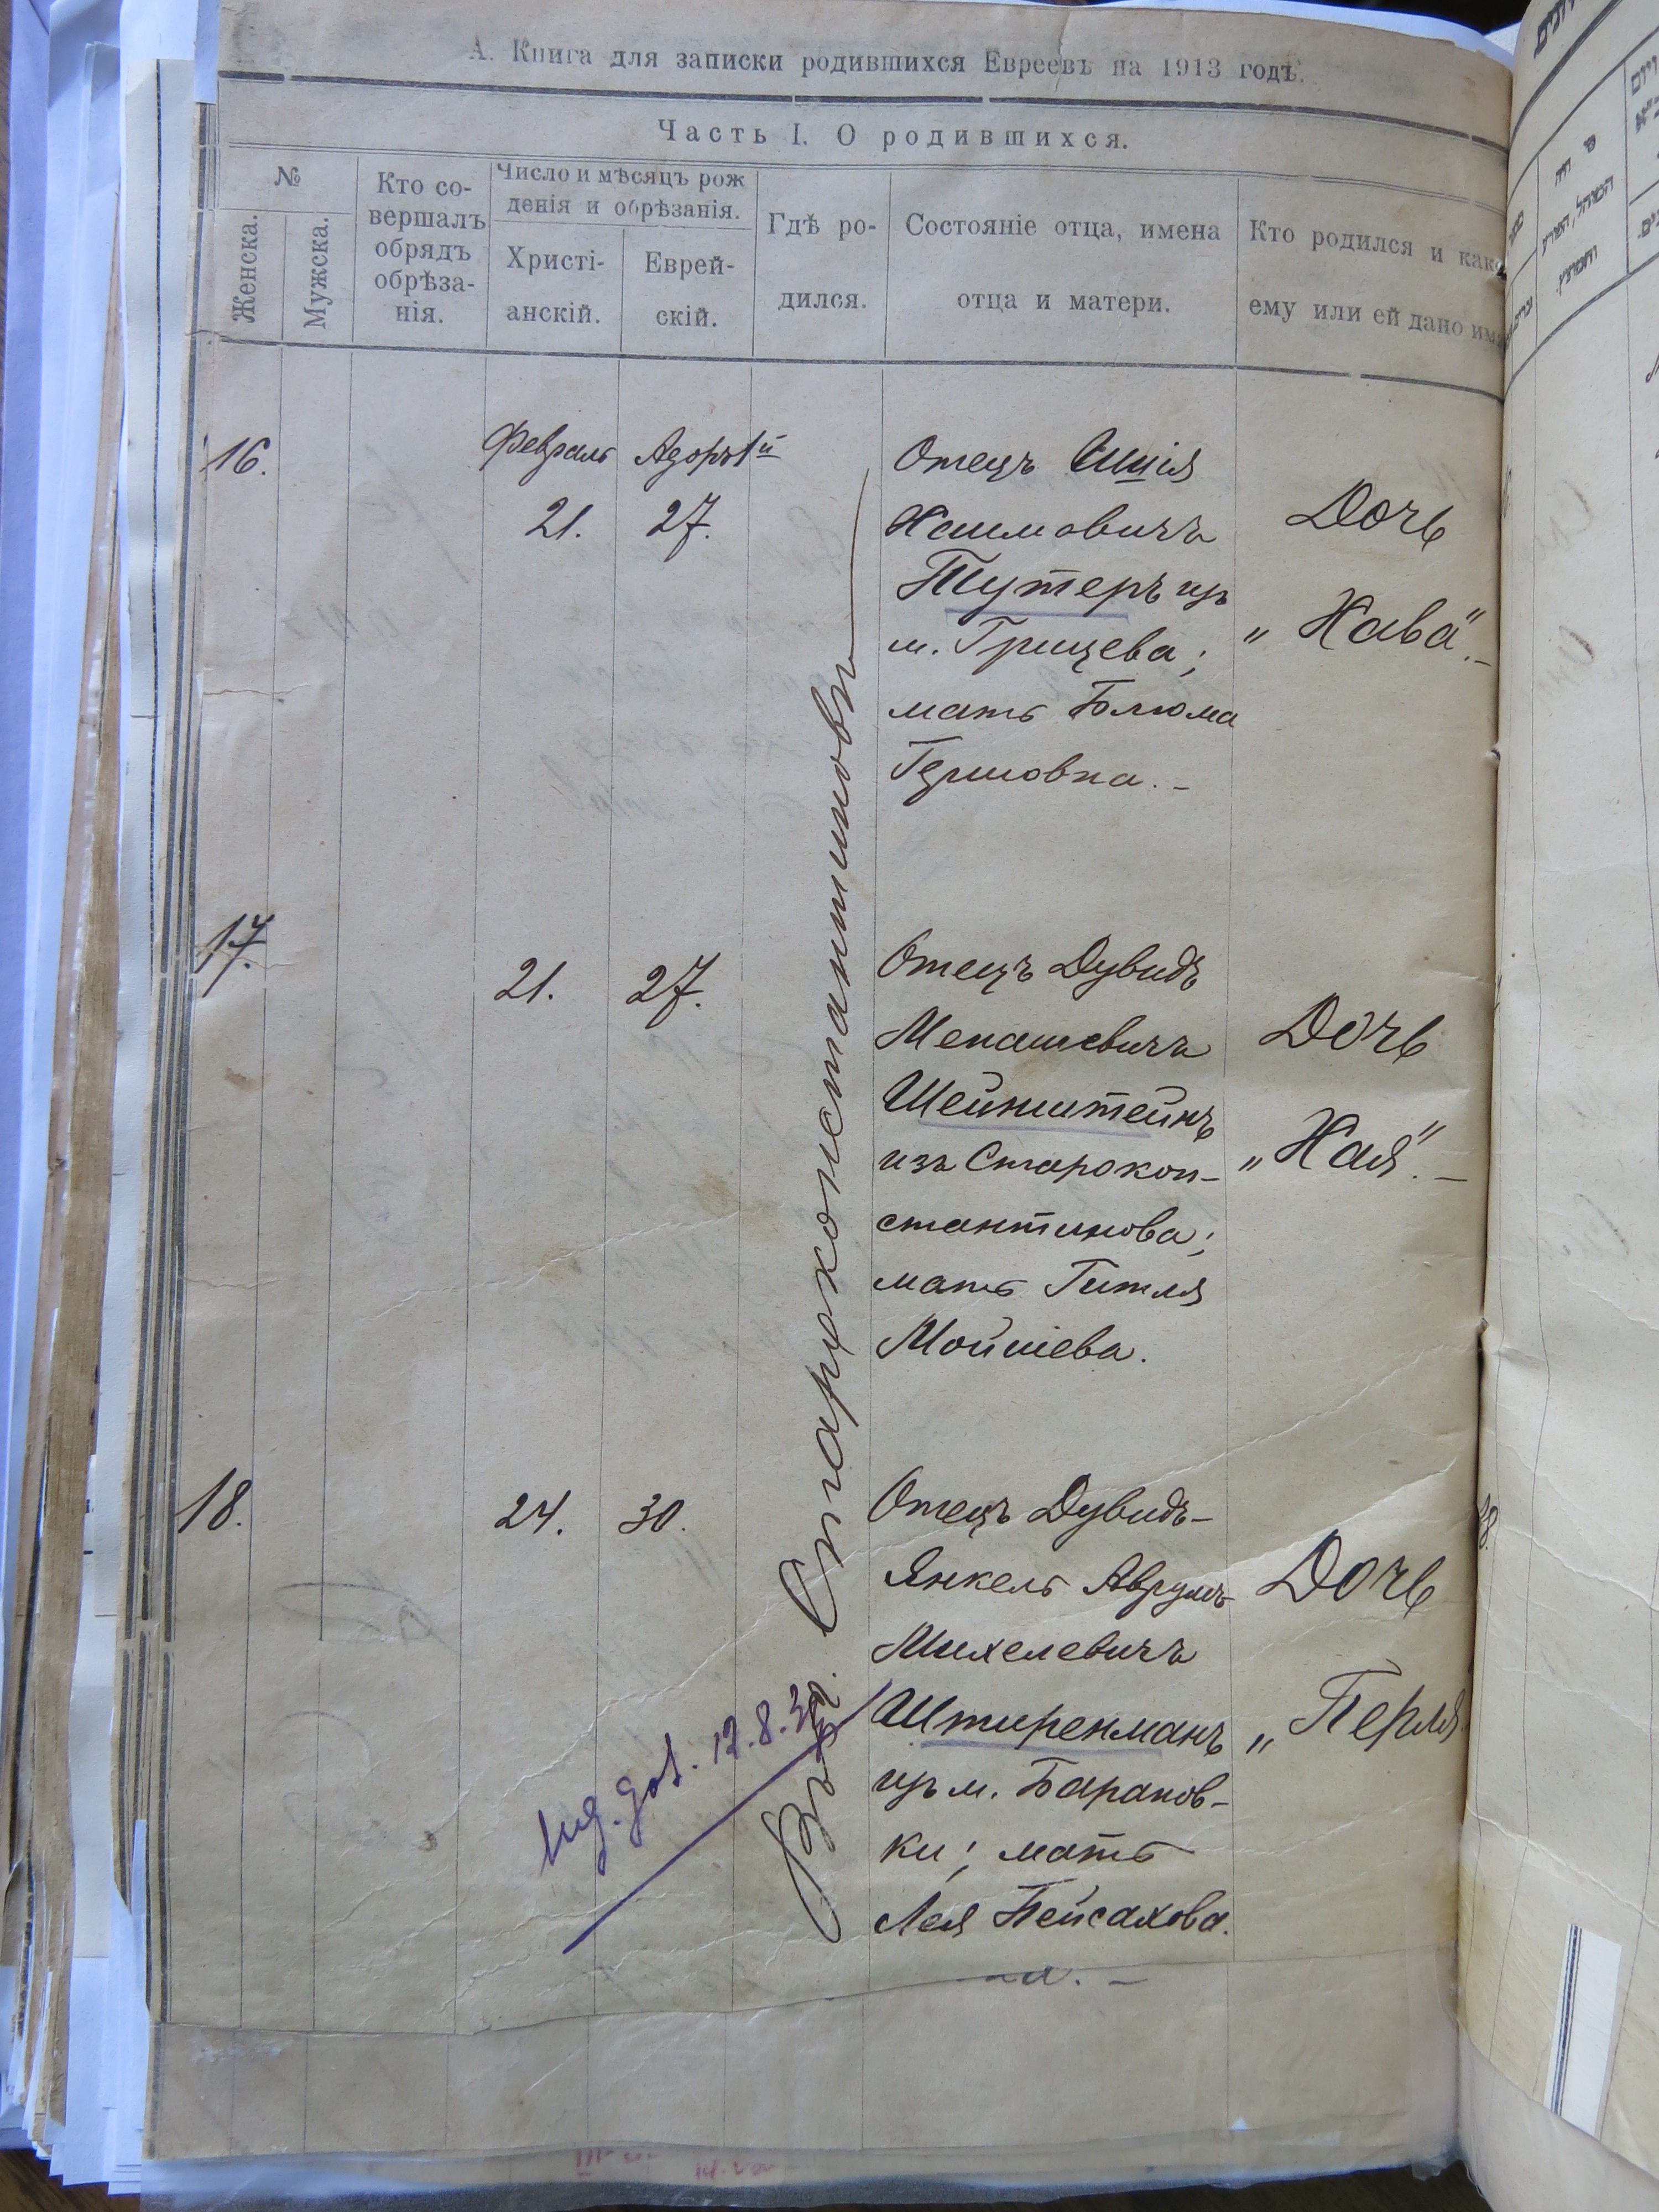 А. Книга для записки родившихся Евреевъ на 1913 годъ.
Часть I. О родившихся.
№
Женска.
Мужска.
Кто со-
вершалъ
обрядъ
обрѣза-
нія.
Число и мѣсяцъ рож
денія и обрѣзанія.
Христі-
анскій.
Еврей-
скій.
Гдѣ ро-
дился.
Состояніе отца, имена
отца и матери.
Кто родился и како
ему или ей дано имя
Въ г. Староконстантиновѣ
16.
Февраль Адоръ 1й
21. 27.
Отецъ Шіія
Хаимовичъ
Тутеръ изъ
м. Грицева;
мать Блюма
Гершовна. –
Дочь
„Хава“. –
17.
21. 27.
Отецъ Дувидъ
Менашевичъ
Шейнштейнъ
изъ Старокон-
стантинова;
мать Гитля
Мойшева.
Дочь
„Хая“. –
18.
24. 30.
Отецъ Дувидъ-
Янкель Аврумъ
Михелевичъ
Штиренманъ
изъ м. Баранов-
ки; мать
Лея Пейсахова.
Дочь
„Перля
12.8.
на. –